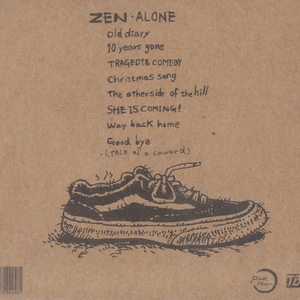 ZEN - ALONE
Old diary
10 years gone
TRAGEDY & COMEDY
Christmas song
The otherside of the hill
SHE IS COMING!
Way back home
Good bye
(TALE of a coward)